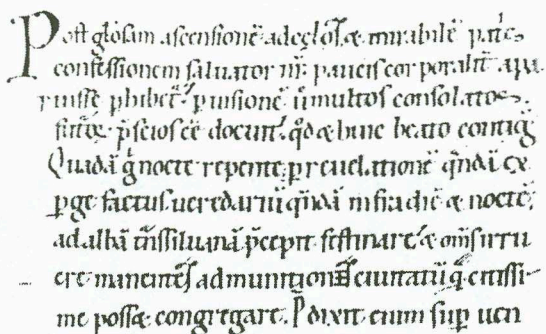 Post gl̃osam ascensionẽ ad cęlos & mirabilẽ pat̃s
confessionem saluator nr̃ paucis corporalit̃ apa
ruisse p̱hibet̃ p̱ uisionẽ u̾o multos consolatos
 p̃scios eẽ docuit qd̃ & huic beato contigit
Quadã g̃ nocte repente p̱ reuelationẽ qñdã ex
p̱ge factus ueredariũ quẽdã infra diẽ & noctẽ
ad albã tñssiluanã p̃cepit festinare & om̃s in ru
re manentes ad munitiones ciuitatũ q̃ citissi
me poss& congregare. P̃dixit enim sup̱ uen